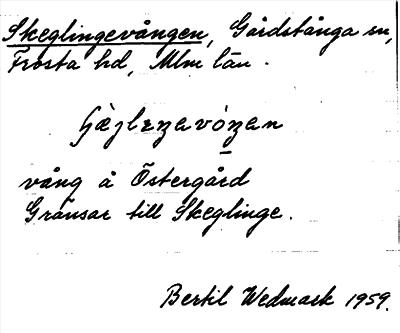 Skeglingevången, Gårdstånga sn,
Frosta hd, Mlm län.
vång å Östergård
Gränsar till Skeglinge.
Bertil Wedmark 1959.